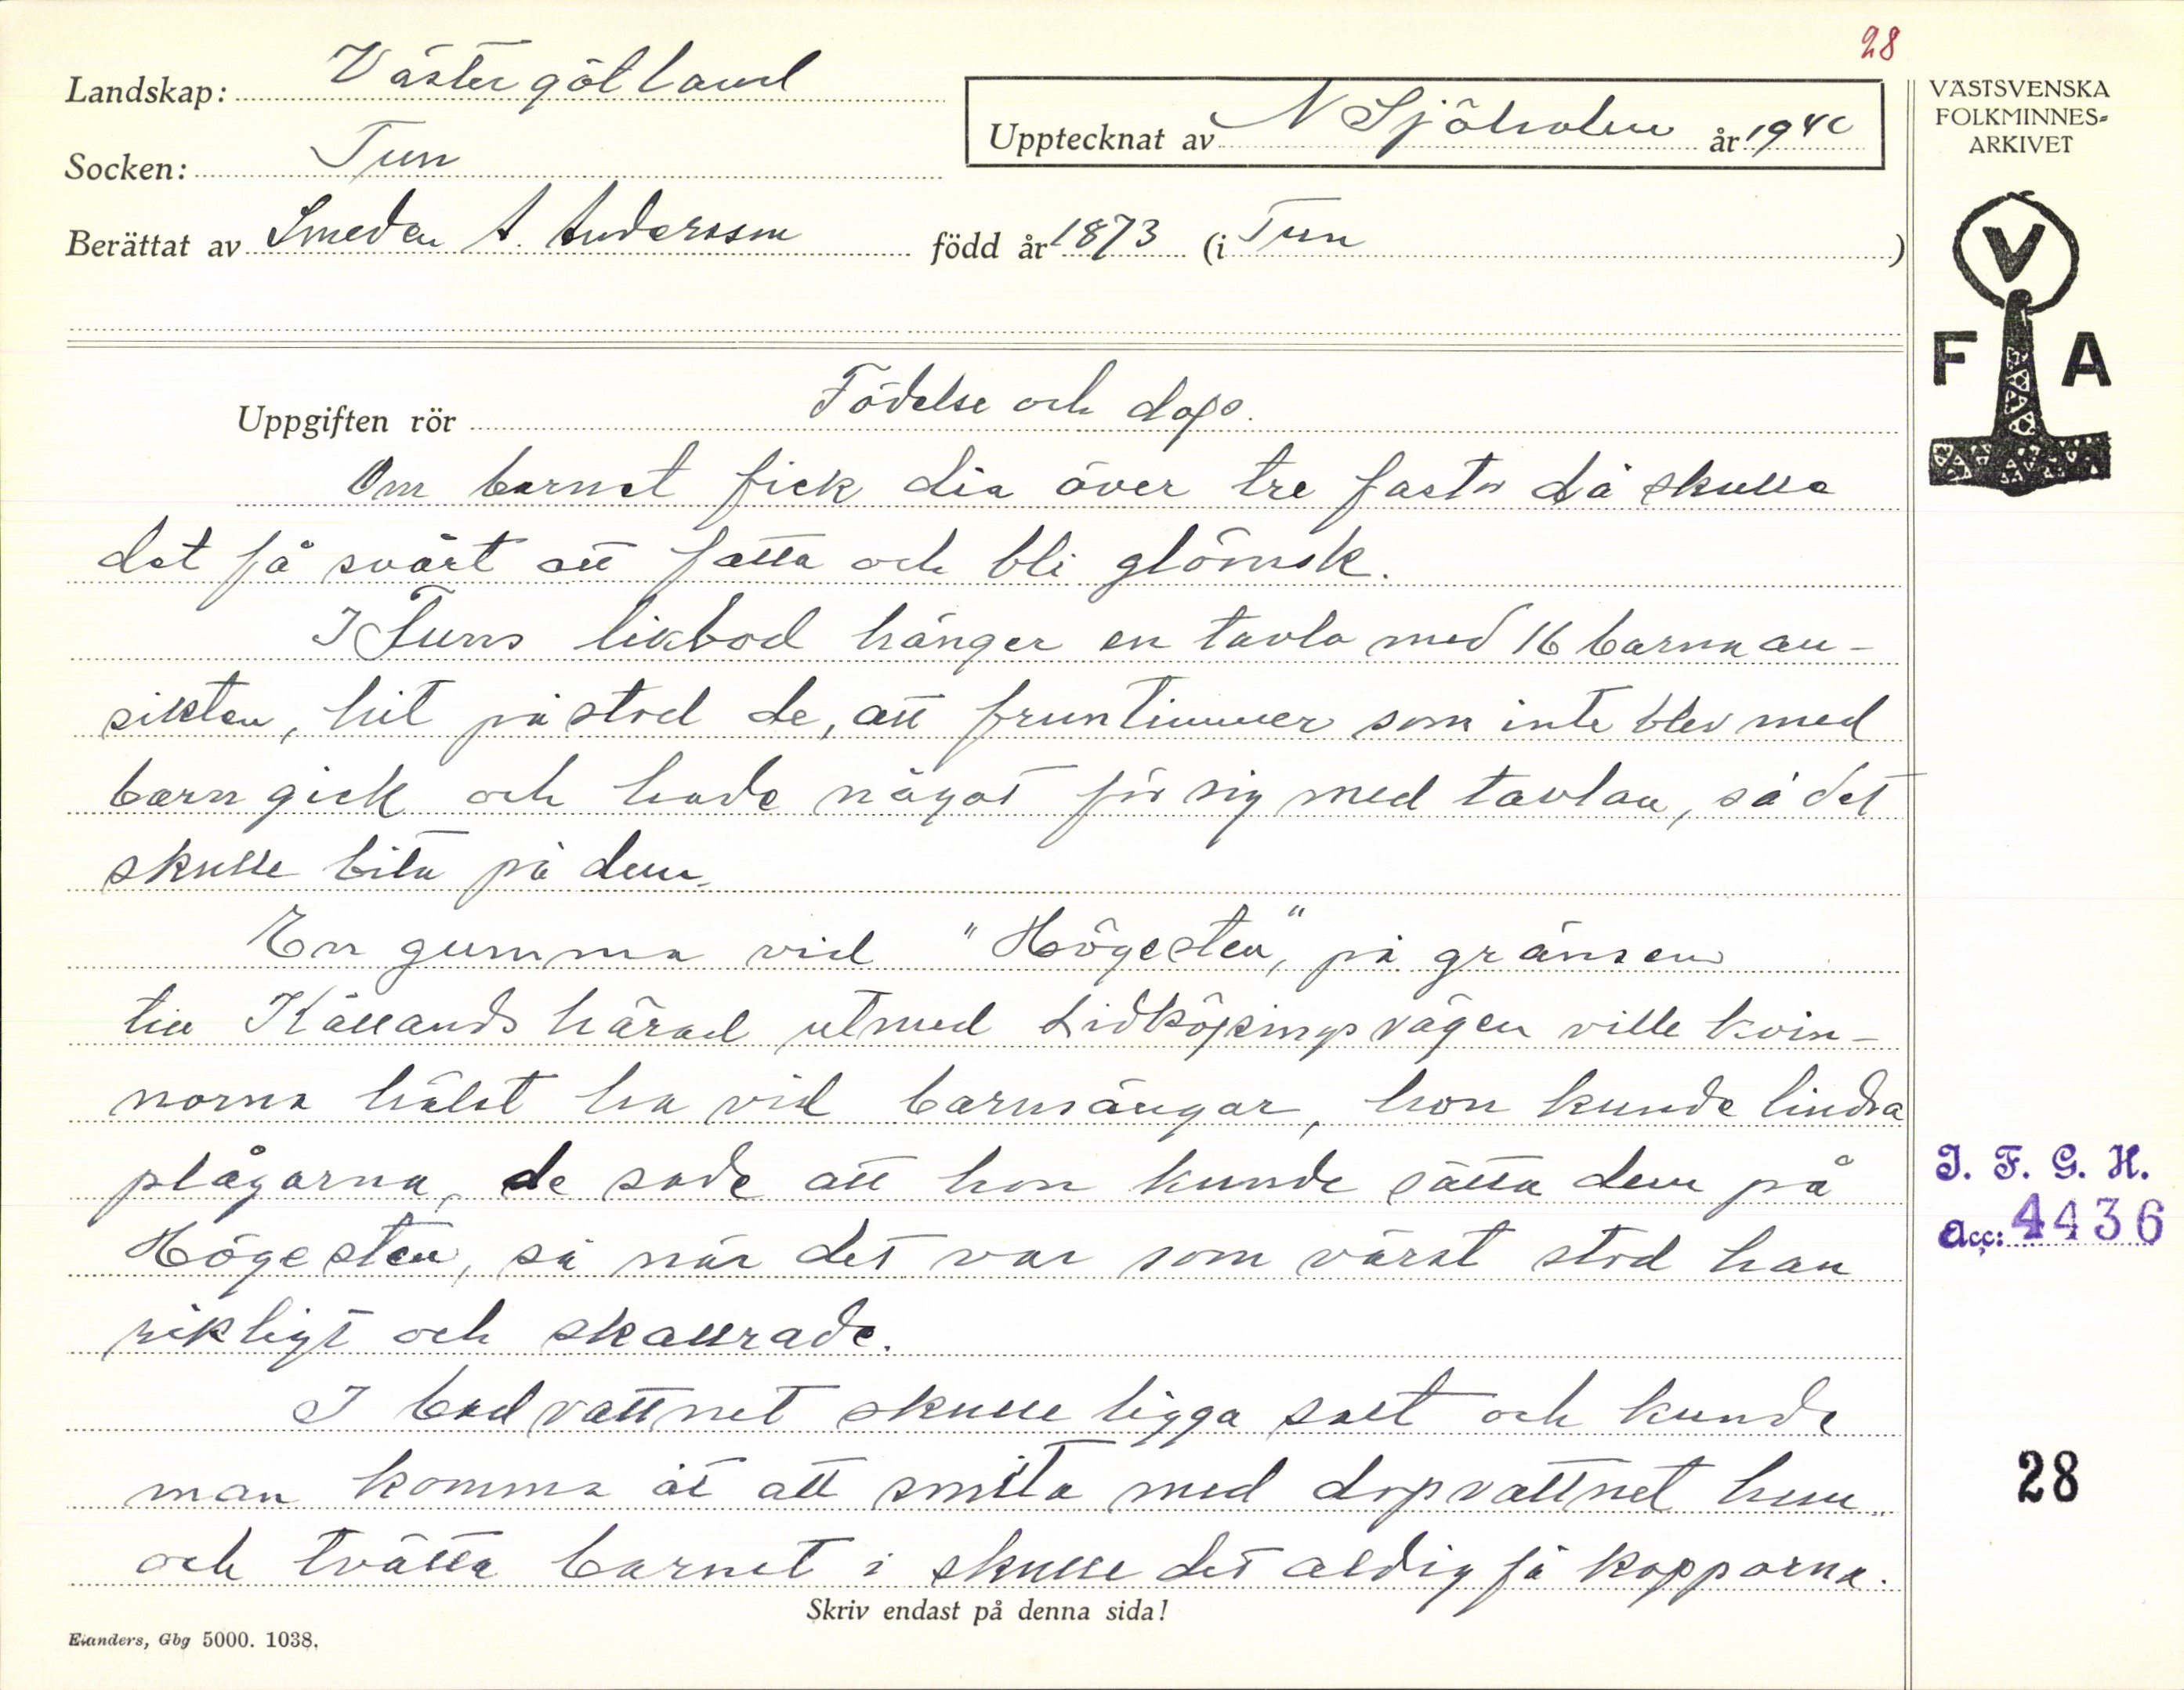 28
Landskap: Västergötland
Upptecknat av N Sjöholm år 1940
Socken: Tun
Berättat av Smeden A. Andersson född år 1873 (i Tun )
VÄSTSVENSKA
FOLKMINNES=
ARKIVET
V
F A
Uppgiften rör Födelse och dop.
Om barnet fick dia över tre fastor då skulle
det få svårt att fatta och bli glömsk.
I Tuns likbod hänger en tavla med 16 barnaan-
sikten, hit påstod de, att fruntimmer som inte blev med
barn gick och hade något för sig med tavlan, så det
skulle bita på dem.
En gumma vid "Högesten", på gränsen
till Kållands härad utmed Lidköpingsvägen ville kvin-
norna hälst ha vid barnsängar, hon kunde lindra
plågorna, de sade att hon kunde sätta dem på
Högesten, så när det var som värst stod han
rikligt och skallrade.
I badvattnet skulle ligga salt och kunde
man komma åt att smita med dopvattnet hem
och tvätta barnet i skulle det aldig få kopporna.
Skriv endast på denna sida!
Elanders, Gbg 5000. 1038.
I. F. G. H.
Acc: 4436
28